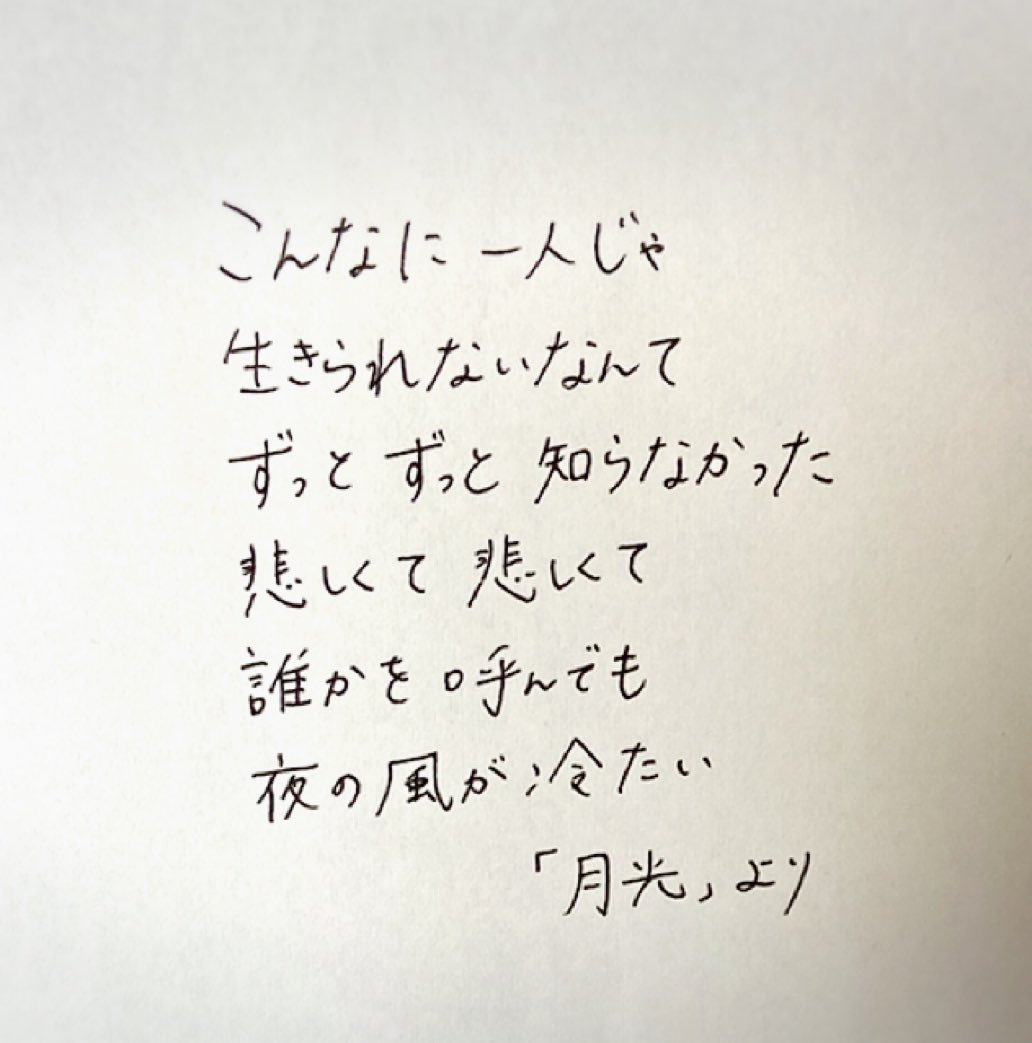 こんなに 一人じゃ
生きられないなんて
ずっと ずっと 知らなかった
悲しくて 悲しくて
誰かを 呼んでも
夜の風が 冷たい
「月光」より